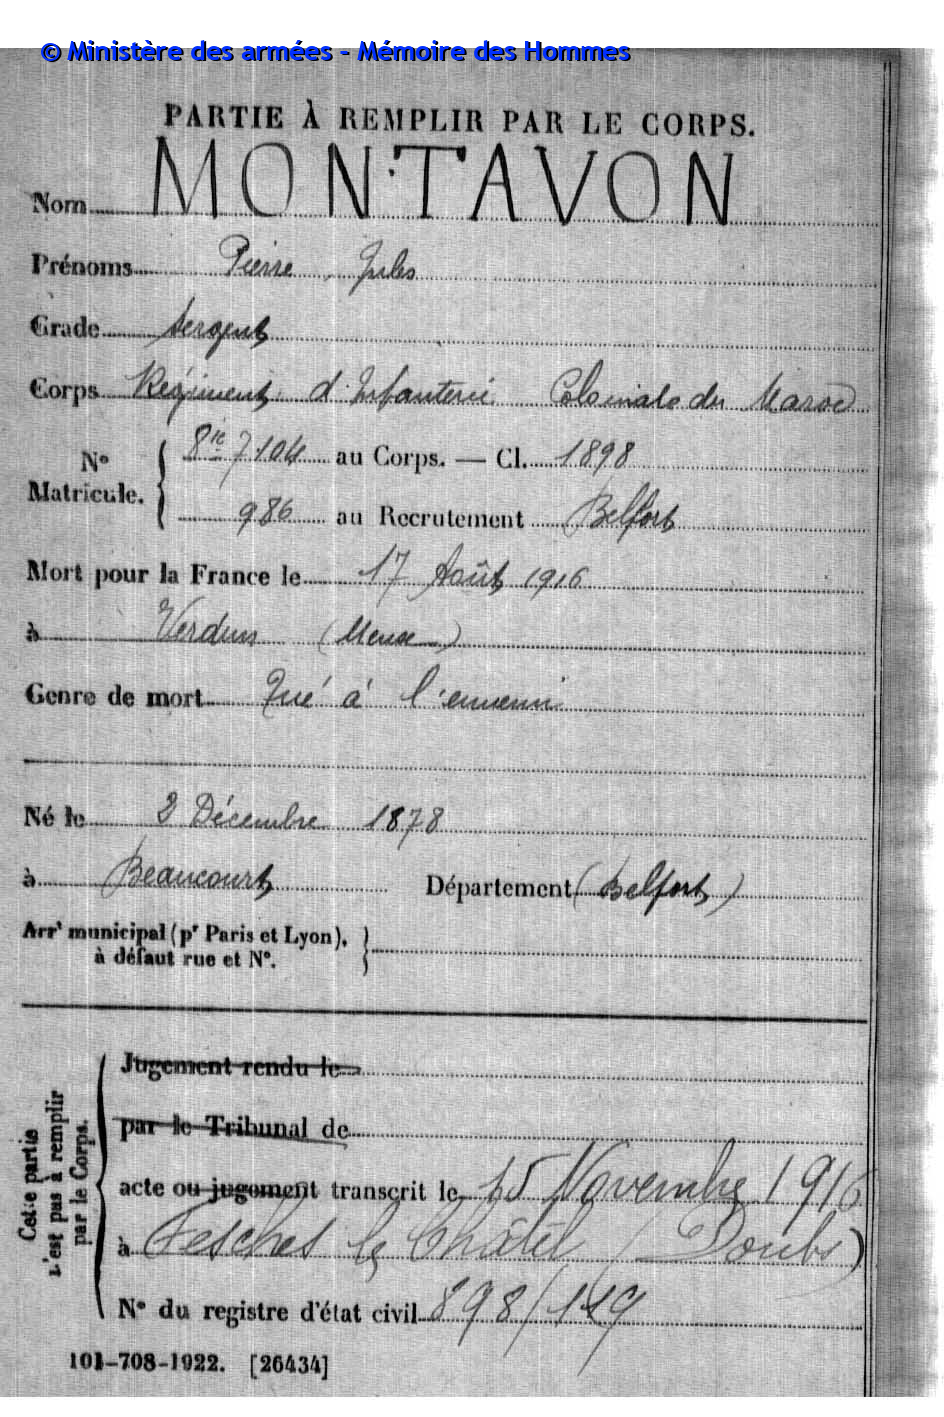 © Ministère des armées - Mémoire des Hommes
PARTIE À REMPLIR PAR LE CORPS.
Nom MONTAVON
Prénoms Pierre, Jules
Grade Sergent
Corps Régiment d'Infanterie Coloniale du Maroc
N° Matricule. { 8ie 7104 au Corps. — Cl. 1898
986 au Recrutement Belfort
Mort pour la France le 17 Août 1916
à Verdun (Meuse)
Genre de mort Tué à l'ennemi
Né le 2 Décembre 1878
à Beaucourt Département (Belfort)
Arrt municipal (pr Paris et Lyon),
à défaut rue et N°.
Cette partie
n'est pas à remplir
par le Corps.
Jugement rendu le
par le Tribunal de
acte ou jugement transcrit le 15 Novembre 1916
à Fesches le Châtel (Doubs)
N° du registre d'état civil 898/119
101-708-1922. [26434]